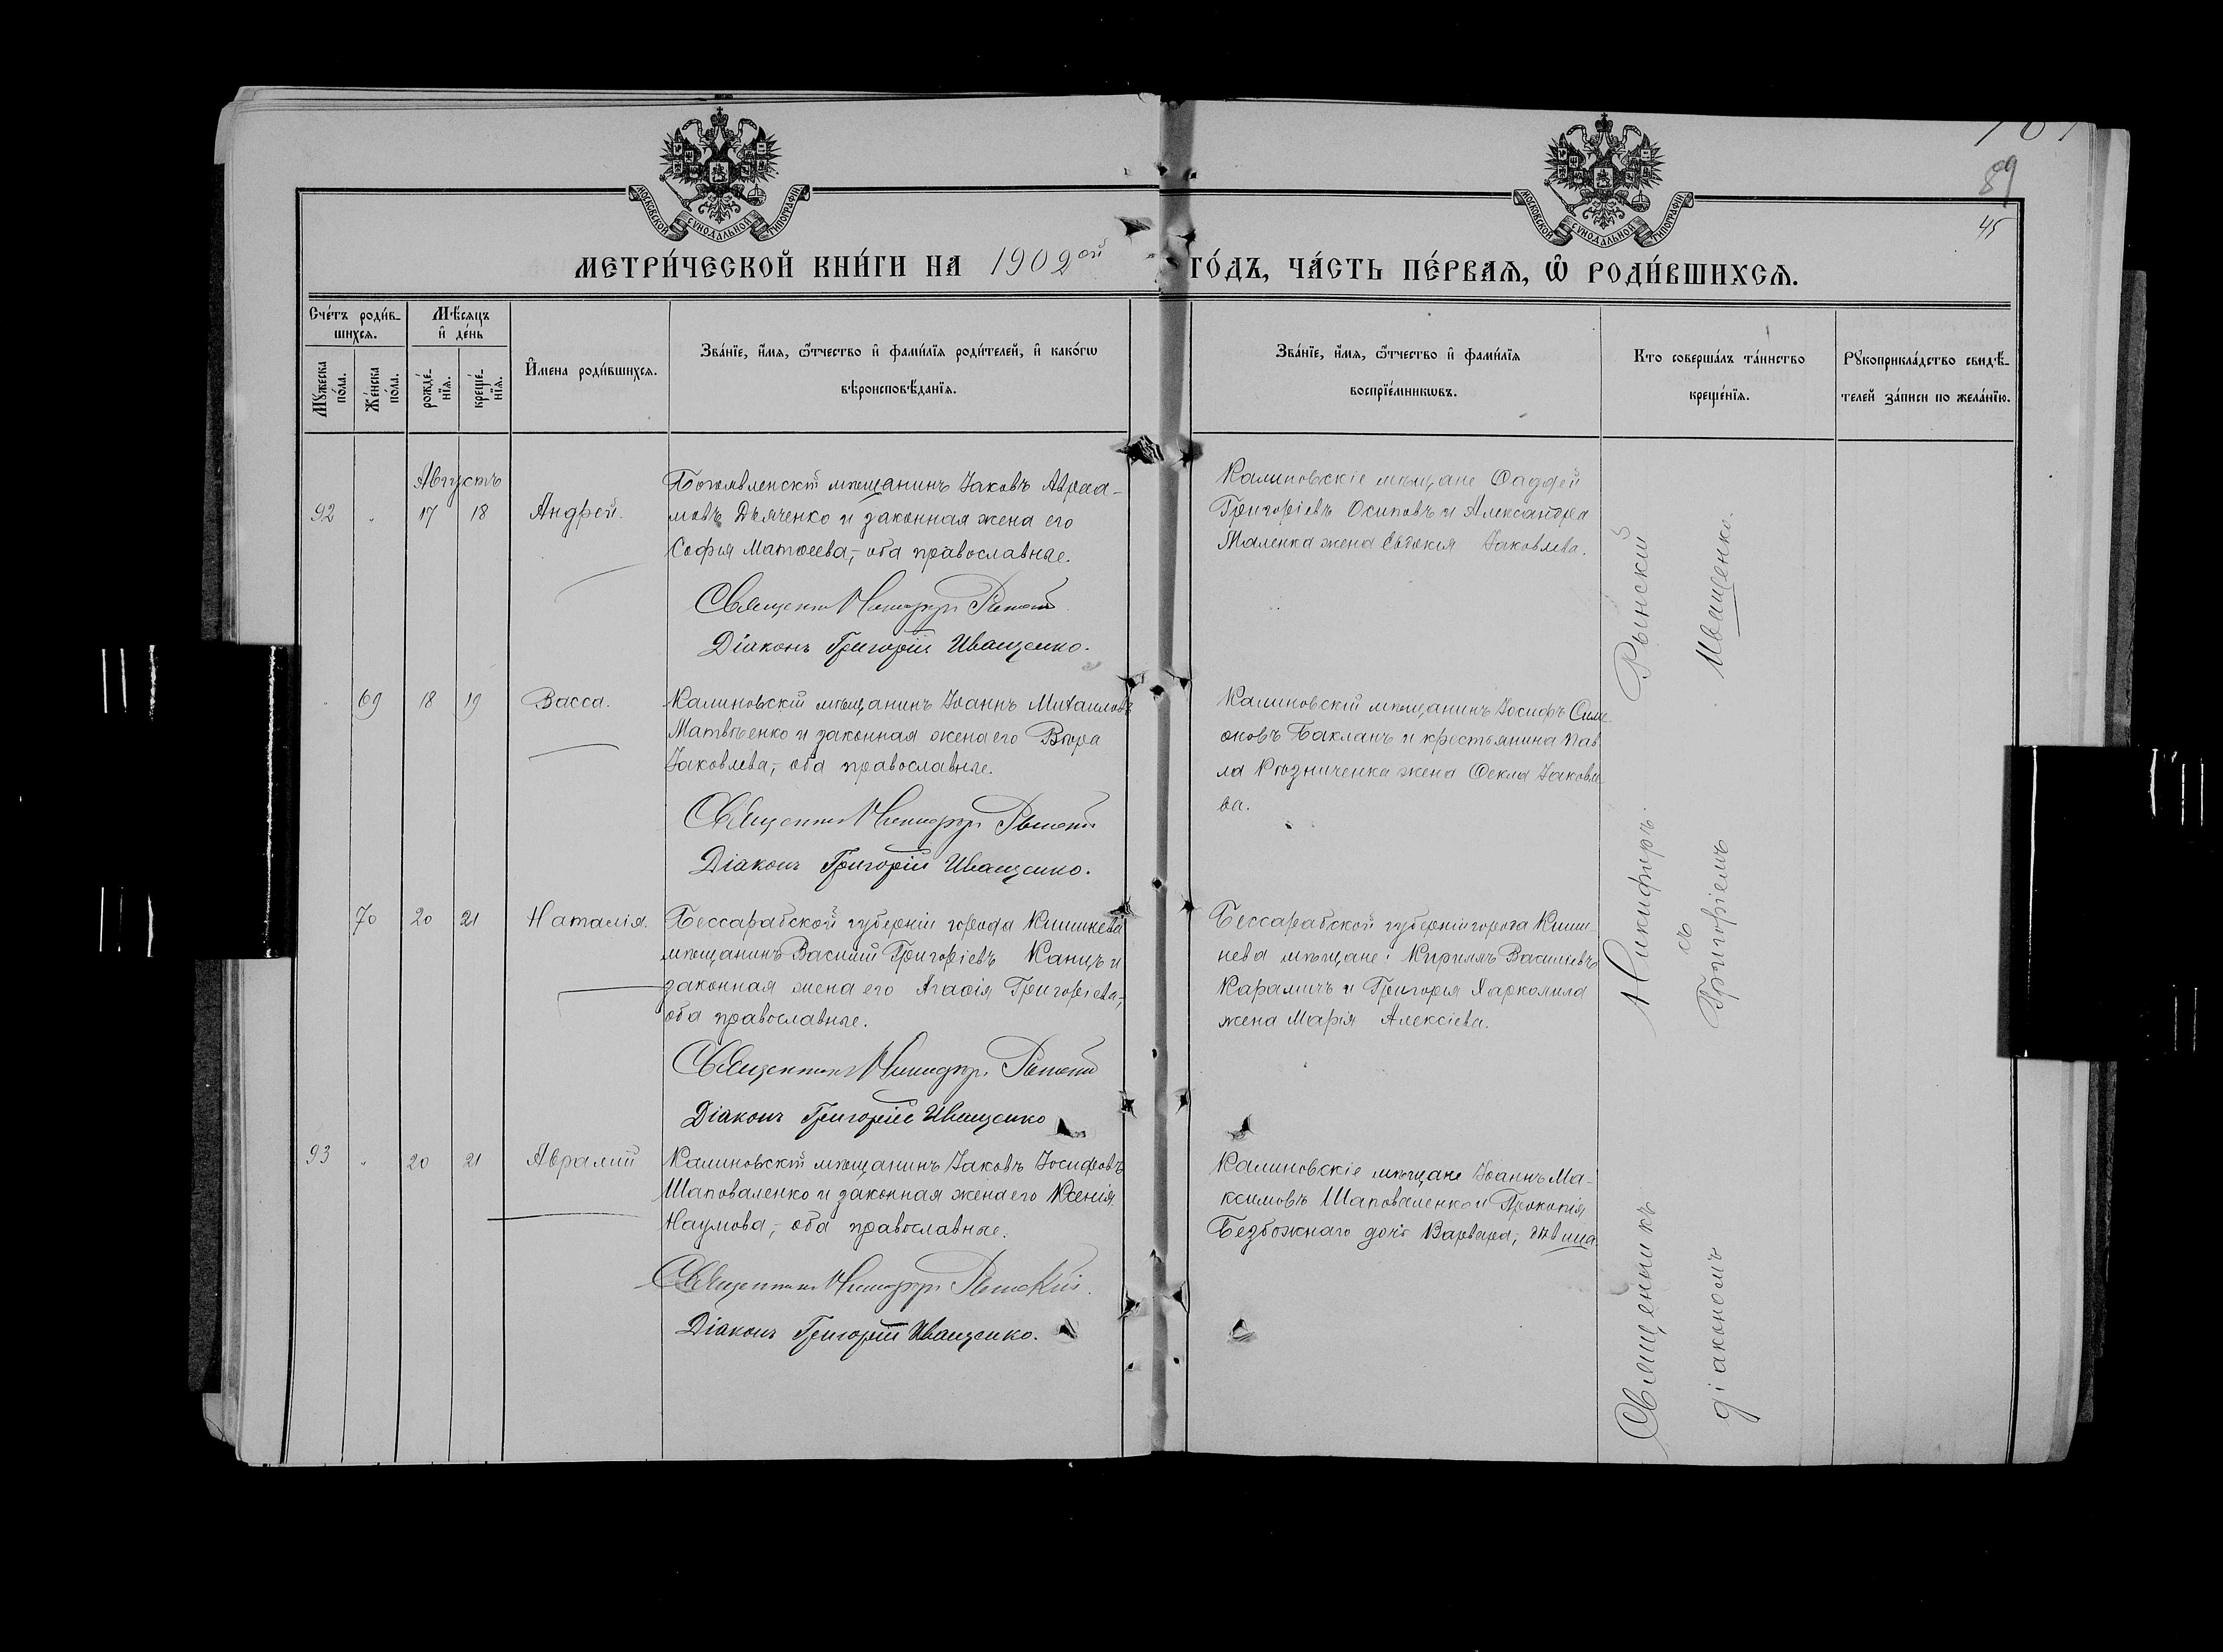 МОСКОВСКОЙ СѴНОДАЛЬНОЙ ТИПОГРАФІИ
МОСКОВСКОЙ СѴНОДАЛЬНОЙ ТИПОГРАФІИ
89
45
МЕТРИ́ЧЕСКОЙ КНИ́ГИ НА 1902ой ГО́ДЪ, ЧА́СТЬ ПЕ́РВАЯ, Ѡ РОДИ́ВШИХСЯ.
Сче́тъ роди́в-
шихся.
Мѣ́сяцъ
и де́нь
Мꙋжеска
по́ла.
Же́нска
по́ла.
рожде́-
нїя.
креще́-
нїя.
И́мена роди́вшихся.
Зва́нїе, и́мя, ѻ҆́тчество и фами́лїя роди́телей, и како́гѡ
вѣроисповѣ́данїя.
Зва́нїе, и́мя, ѻ҆́тчество и фами́лїя
воспрїе́мникѡвъ.
Кто соверша́лъ та́инство
креще́нїя.
Рꙋкоприкла́дство свидѣ́-
телей за́писи по жела́нїю.
Августъ
92 " 17 18 Андрей.
Богоявленскій мѣщанинъ Іаковъ Авраа-
мовъ Дьяченко и законная жена его
Софья Матѳеева,- оба православные.
Священникъ Никифоръ Рынскій
Діаконъ Григорій Иващенко.
Калиновскіе мѣщане Ѳаддей
Григоріевъ Осиповъ и Александра
жена Евдокія Іаковлева.
" 69 18 19 Васса.
Калиновскій мѣщанинъ Іоаннъ Михаиловъ
Матвѣенко и законная жена его Вѣра
Іаковлева,- оба православные.
Священникъ Никифоръ Рынскій
Діаконъ Григорій Иващенко.
Калиновскій мѣщанинъ Іосифъ Симе-
оновъ Бакланъ и крестьянина Пав
ла Кюзниченка жена Ѳекла Іаковле
ва.
70 20 21 Наталія.
Бессарабской губерніи города Кишинева
мѣщанинъ Василій Григоріевъ Канцъ и
законная жена его Агафія Григоріева,-
оба православные.
Священникъ Никифоръ Рынскій
Діаконъ Григорій Иващенко
Бессарабской губерніи города Киши
нева мѣщане: Кириллъ Васильевъ
и Григорія
жена Марія Алексіева.
93 " 20 21 Аврамій
Калиновскій мѣщанинъ Іаковъ Іосифовъ
Шаповаленко и законная жена его Ксенія
Наумова,- оба православные.
Священникъ Никифоръ Рынскій.
Діаконъ Григорій Иващенко.
Калиновскіе мѣщане Іоаннъ Ма-
ксимовъ Шаповаленко и Прокопія
Безбожнаго дочь Варвара, дѣвица
Священникъ Никифиръ. Рынскій
съ
діакономъ Григоріемъ Иващенко.